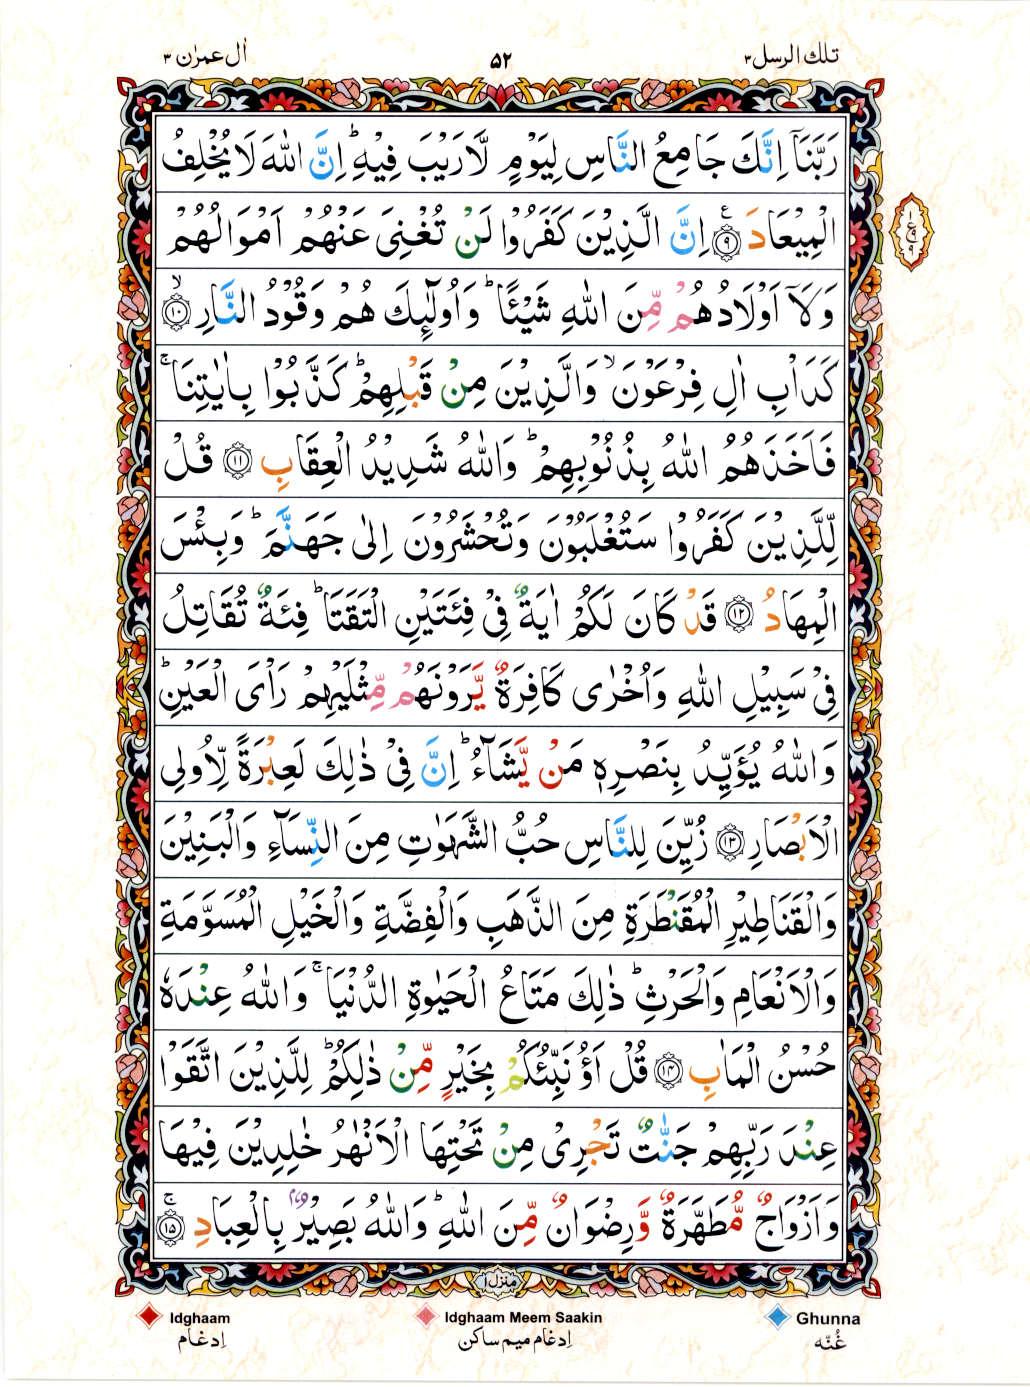 تلك الرسل ٣
٥٢
اٰل عمرٰن ٣
رَبَّنَاۤ اِنَّكَ جَامِعُ النَّاسِ لِيَوْمٍ لَّا رَيْبَ فِيْهِ ؕ اِنَّ اللّٰهَ لَا يُخْلِفُ
الْمِيْعَادَ ﴿٩﴾ اِنَّ الَّذِيْنَ كَفَرُوْا لَنْ تُغْنِىَ عَنْهُمْ اَمْوَالُهُمْ
وَلَاۤ اَوْلَادُهُمْ مِّنَ اللّٰهِ شَيْئًا ؕ وَاُولٰٓئِكَ هُمْ وَقُوْدُ النَّارِ ۙ﴿١٠﴾
كَدَاْبِ اٰلِ فِرْعَوْنَ ۙ وَالَّذِيْنَ مِنْ قَبْلِهِمْ ؕ كَذَّبُوْا بِاٰيٰتِنَا ۚ
فَاَخَذَهُمُ اللّٰهُ بِذُنُوْبِهِمْ ؕ وَاللّٰهُ شَدِيْدُ الْعِقَابِ ﴿١١﴾ قُلْ
لِّلَّذِيْنَ كَفَرُوْا سَتُغْلَبُوْنَ وَتُحْشَرُوْنَ اِلٰى جَهَنَّمَ ؕ وَبِئْسَ
الْمِهَادُ ﴿١٢﴾ قَدْ كَانَ لَكُمْ اٰيَةٌ فِىْ فِئَتَيْنِ الْتَقَتَا ؕ فِئَةٌ تُقَاتِلُ
فِىْ سَبِيْلِ اللّٰهِ وَاُخْرٰى كَافِرَةٌ يَّرَوْنَهُمْ مِّثْلَيْهِمْ رَاْىَ الْعَيْنِ ؕ
وَاللّٰهُ يُؤَيِّدُ بِنَصْرِهٖ مَنْ يَّشَآءُ ؕ اِنَّ فِىْ ذٰلِكَ لَعِبْرَةً لِّاُولِى
الْاَبْصَارِ ﴿١٣﴾ زُيِّنَ لِلنَّاسِ حُبُّ الشَّهَوٰتِ مِنَ النِّسَآءِ وَالْبَنِيْنَ
وَالْقَنَاطِيْرِ الْمُقَنْطَرَةِ مِنَ الذَّهَبِ وَالْفِضَّةِ وَالْخَيْلِ الْمُسَوَّمَةِ
وَالْاَنْعَامِ وَالْحَرْثِ ؕ ذٰلِكَ مَتَاعُ الْحَيٰوةِ الدُّنْيَا ۚ وَاللّٰهُ عِنْدَهٗ
حُسْنُ الْمَاٰبِ ﴿١٤﴾ قُلْ اَؤُنَبِّئُكُمْ بِخَيْرٍ مِّنْ ذٰلِكُمْ ؕ لِلَّذِيْنَ اتَّقَوْا
عِنْدَ رَبِّهِمْ جَنّٰتٌ تَجْرِىْ مِنْ تَحْتِهَا الْاَنْهٰرُ خٰلِدِيْنَ فِيْهَا
وَاَزْوَاجٌ مُّطَهَّرَةٌ وَّرِضْوَانٌ مِّنَ اللّٰهِ ؕ وَاللّٰهُ بَصِيْرٌۢ بِالْعِبَادِ ۚ﴿١٥﴾
منزل ١
Idghaam
اِدغام
Idghaam Meem Saakin
اِدغام میم ساکن
Ghunna
غُنّه